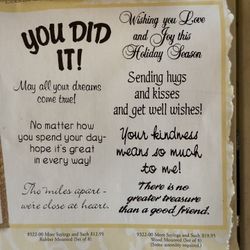 YOU DID
IT!
May all your dreams
come true!
No matter how
you spend your day-
hope it's great
in every way!
The miles apart -
were close at heart.
Wishing you Love
and Joy this
Holiday Season
Sending hugs
and kisses
and get well wishes!
Your kindness
means so much
to me!
There is no
greater treasure
than a good friend.
9322-00 More Sayings and Such $12.95
Rubber Mounted (Set of 8)
9322-00 More Sayings and Such $19.95
Wood Mounted (Set of 8)
(Some assembly required.)